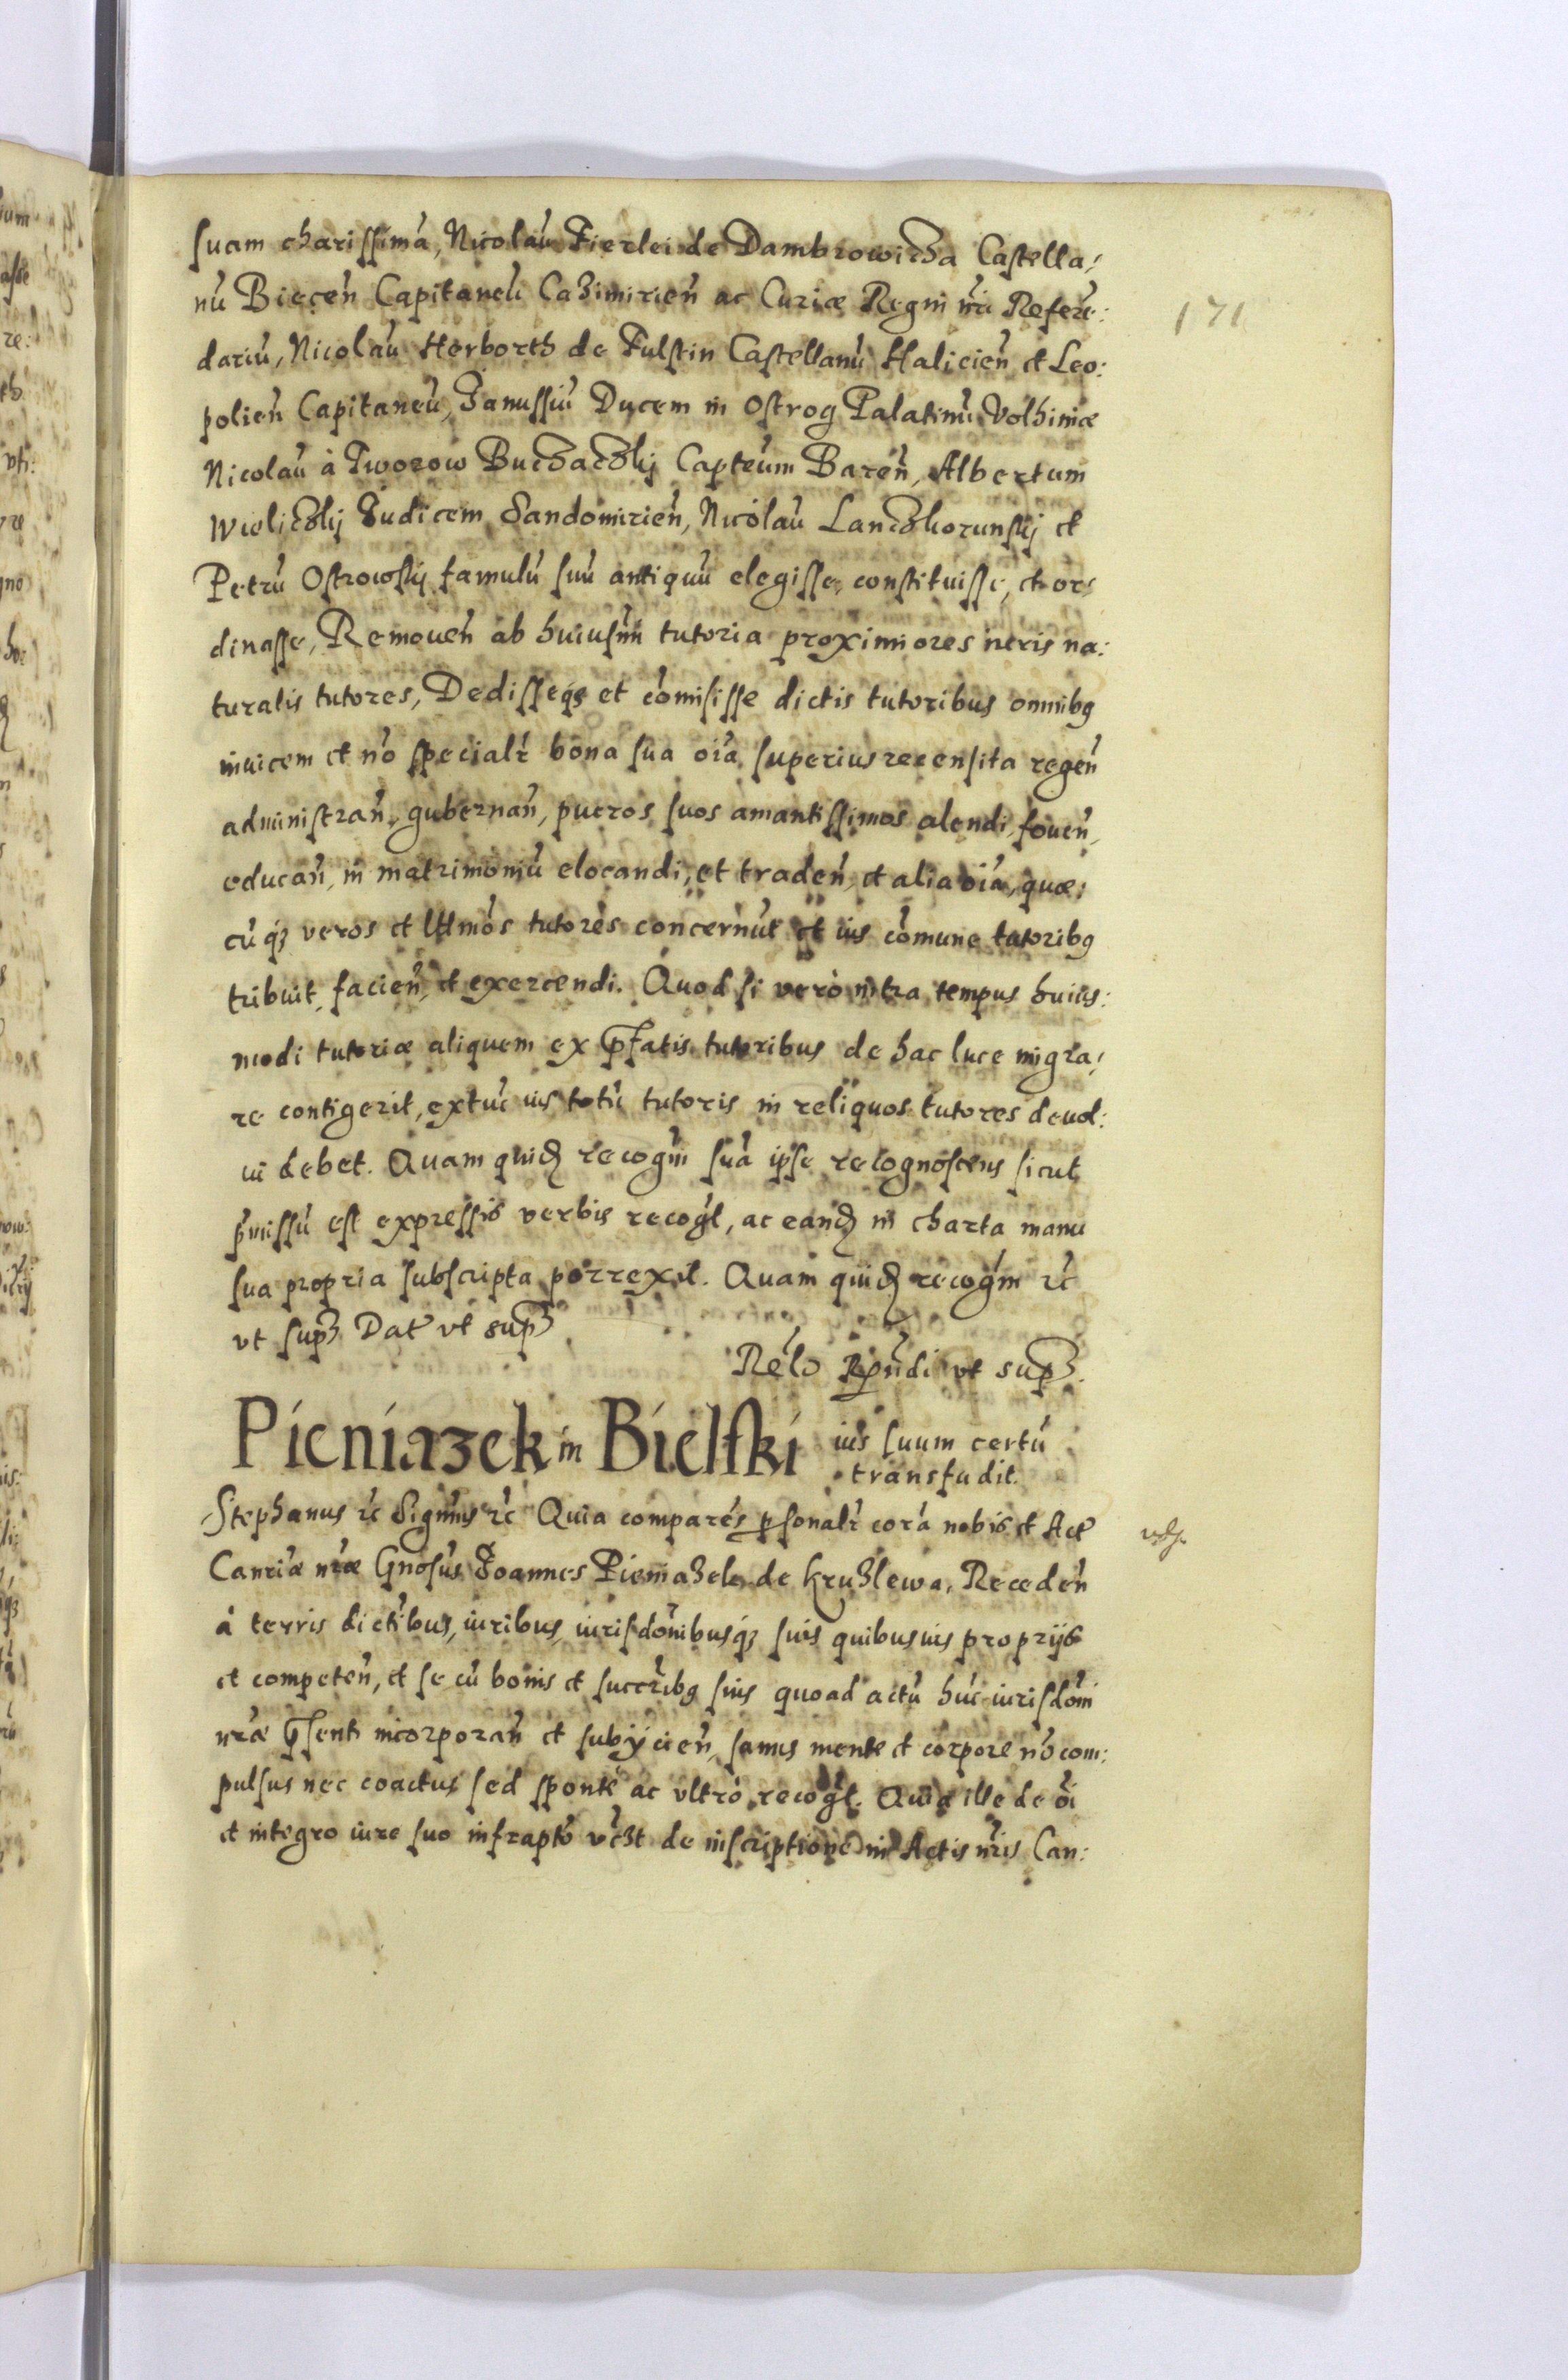 suam charissimā, Nicolaū Fierlei de Dambrowicza Castella/
nū Biecen̄ Capitaneū Cazimirien̄ ac Curiæ Regni nr̄i Referē:
dariū, Nicolaū Herborth de Fulstin Castellanū Halicien̄ et Leo:
polien̄ Capitaneū, Janussiū Ducem in Ostrog Palatinū Volhiniæ
Nicolaū à Tworow Buczaczkij Capteūm Baren̄, Albertum
Wieliczkij Judicem Sandomirien̄, Nicolaū Lanczkorunskij et
Petrū Ostrowskij famulū suū antiquū elegisse, constituisse, et or:
dinasse, Remouen̄ ab huiusm̄i tutoria proximiores iieris na:
turalis tutores, Dedisseqꝫ et cōmisisse dictis tutoribus omnibꝯ
inuicem et nō specialr̄ bona sua oīa superius recensita regen̄
administran̄, gubernan̄, pueros suos amantissimos alendi, fouen̄,
educan̄, in matrimoniū elocandi, et traden̄, et alia oīa, quæ:
cūqꝫ veros et lttmōs tutores concernūt et ius cōmune tutoribꝯ
tribuit, facien̄, et exercendi. Quod si verò intra tempus huius:
modi tutoriæ aliquem ex p̄fatis tutoribus de hac luce migra/
re contigerit, extūc ius totū tutoris in reliquos tutores deuol:
ui debet. Quam quidꝫ recogm̄ suā ipse recognoscens sicut
p̄missū est expressis verbis recogt̄, ac eandꝫ in charta manu
sua propria subscripta porrexit. Quam quidꝫ recogm̄ ꝛc̄
vt supꝫ Dat̄ vt supꝫ
Relō Rp̄ndi vt supꝫ.
Pieniazek in Bielski ius suum certū
transfudit.
Stephanus ꝛc̄ Signm̄us ꝛc̄ Quia comparēs ꝑsonalr̄ corā nobis et Act̄
Canr̄iæ nr̄æ Gnosus Joannes Pieniazek de Kruzlewa, Receden̄
à terris dictr̄ibus, iuribus, iurisdōnibusqꝫ suis quibusuis proprijs
et competen̄, et se cū bonis et succr̄ibꝯ suis quoad actū hūc iurisdōni
nr̄æ p̄senti incorporan̄ et subijcien̄, sanus mente et corpore nō com:
pulsus nec coactus, sed sponte ac vltrò recogt̄. Quia ille de oī
et integro iure suo infraptō vc̄ꝫt de inscriptione in Actis nr̄is Can:
171